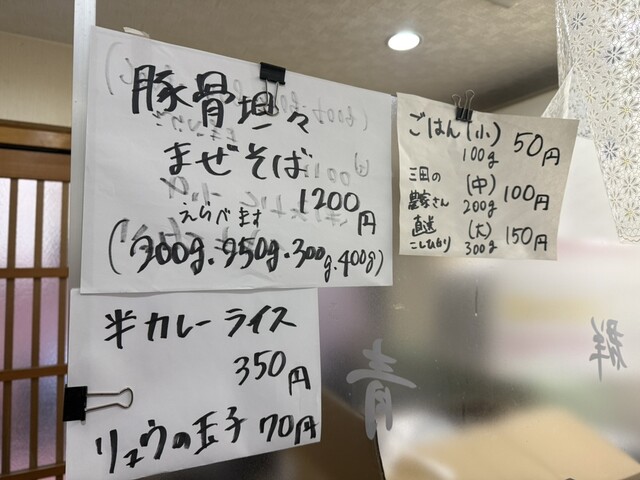 豚骨坦々
まぜそば
1200円
えらべます
(200g.250g.300g.400g)
ごはん(小) 50円
100g
三田の
農家さん
直送
こしひかり
(中) 100円
200g
(大) 150円
300g
半カレーライス
350円
リュウの玉子 70円
青
群